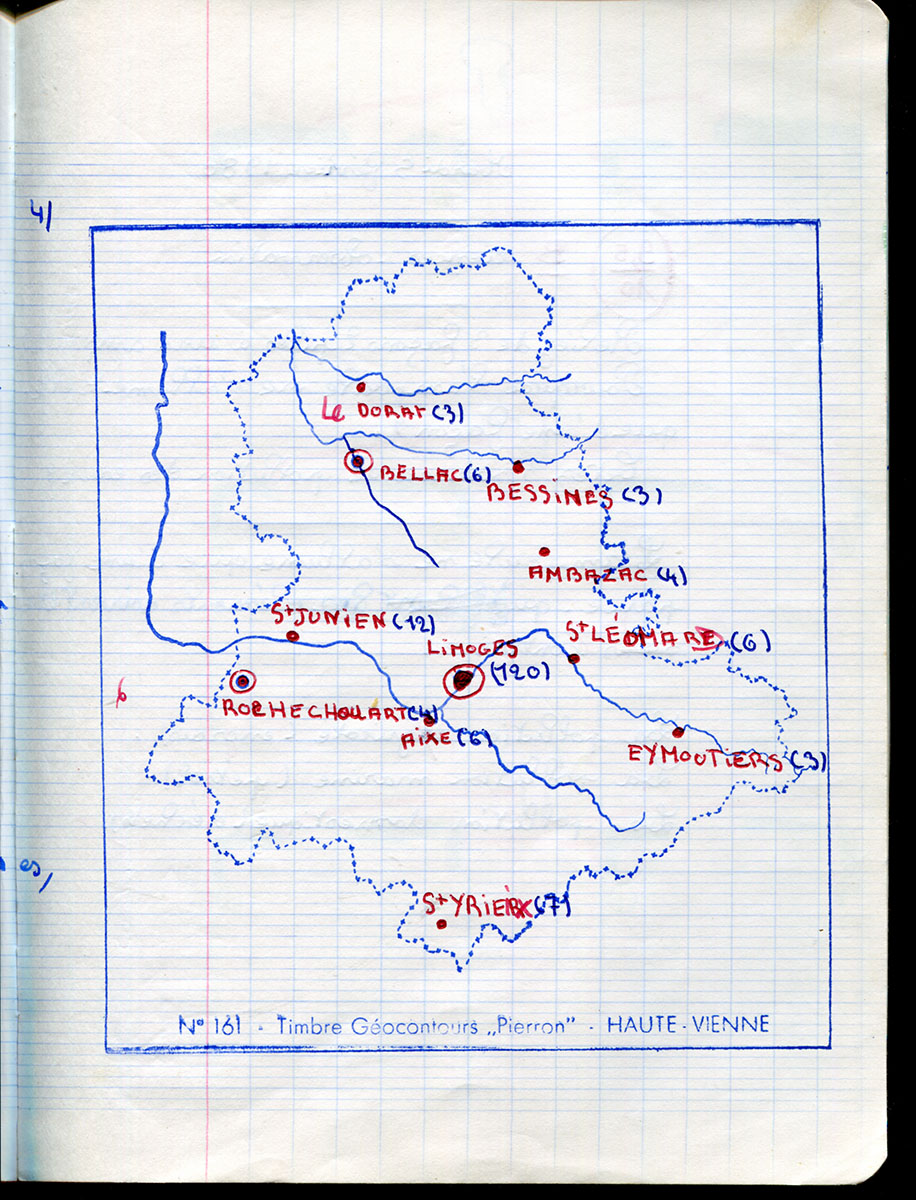 4/
Le DORAT (3)
BELLAC (6)
BESSINES (3)
AMBAZAC (4)
St JUNIEN (12)
LiMOGES
(120)
St LÉOMARE (6)
ROCHECHOUART (4)
AiXE (6)
EYMOUTiERS (3)
es,
St YRiEiX (7)
N° 161 - Timbre Géocontours „Pierron" - HAUTE-VIENNE